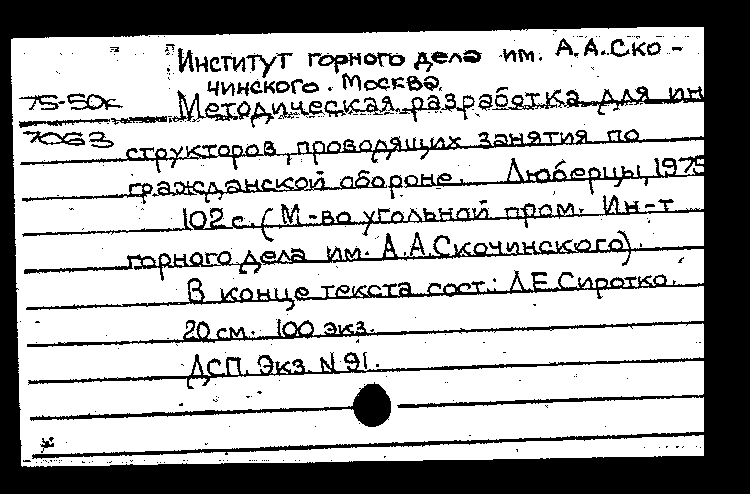 Институт горного дела им. А.А.Ско-
чинского. Москва.
75-50к Методическая разработка для ин
7063 структоров, проводящих занятия по
гражданской обороне. Люберцы, 1975
102 с. (М-во угольной пром. Ин-т
горного дела им. А.А.Скочинского).
В конце текста сост.: Л.Е.Сиротко.
20 см. 100 экз.
ДСП. Экз. N 91.